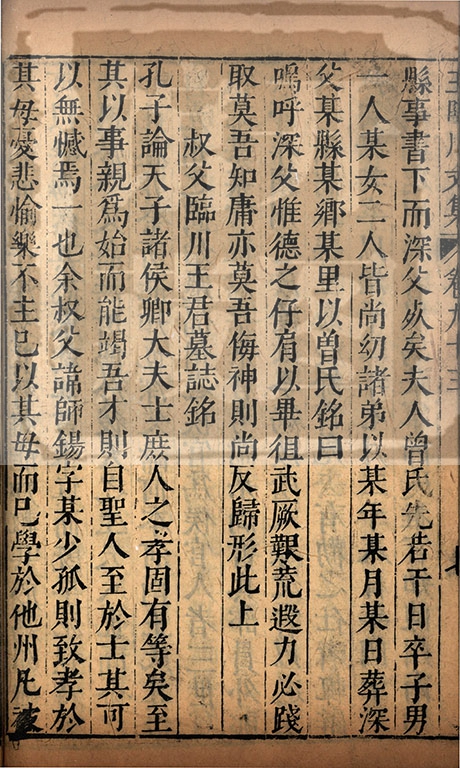 王臨川文集 卷九十三
縣事書下而深父死矣夫人曾氏先若干日卒子男
一人某女二人皆尚幼諸弟以某年某月某日葬深
父某縣某鄉某里以曾氏銘曰
嗚呼深父惟德之仔肩以畢徂武厥艱荒遐力必踐
取莫吾知庸亦莫吾侮神則尚反歸形此上
叔父臨川王君墓誌銘
孔子論天子諸侯卿大夫士庶人之孝固有等矣至
其以事親爲始而能竭吾才則自聖人至於士其可
以無憾焉一也余叔父諱師錫字某少孤則致孝於
其母憂悲愉樂不主巳以其母而巳學於他州凡被